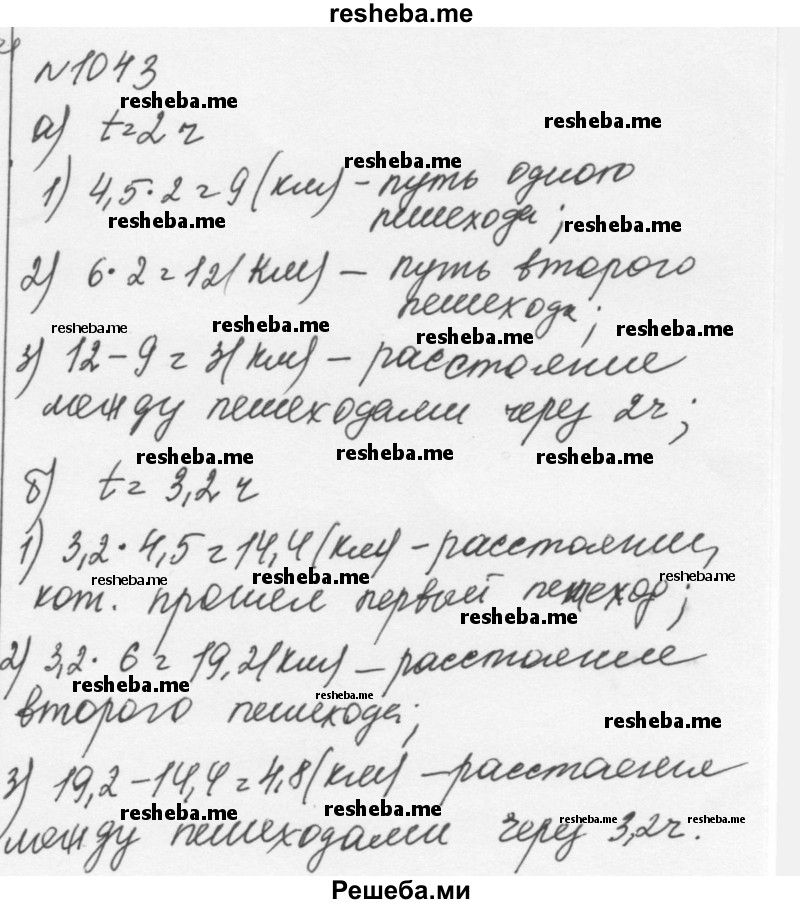 resheba.me
№1043
resheba.me
а) t=2 ч
resheba.me
resheba.me
1) 4,5·2=9(км) – путь одного
пешехода;
resheba.me
resheba.me
2) 6·2=12(км) – путь второго
пешехода;
resheba.me
resheba.me
resheba.me
resheba.me
3) 12–9=3(км) – расстояние
между пешеходами через 2ч;
resheba.me
resheba.me
resheba.me
б) t=3,2 ч
1) 3,2·4,5=14,4(км) – расстояние,
resheba.me
resheba.me
resheba.me
кот. прошел первый пешеход;
resheba.me
2) 3,2·6=19,2(км) – расстояние
resheba.me
resheba.me
второго пешехода;
resheba.me
3) 19,2–14,4=4,8(км) – расстояние
resheba.me
resheba.me
resheba.me
resheba.me
между пешеходами через 3,2ч.
Решеба.ми